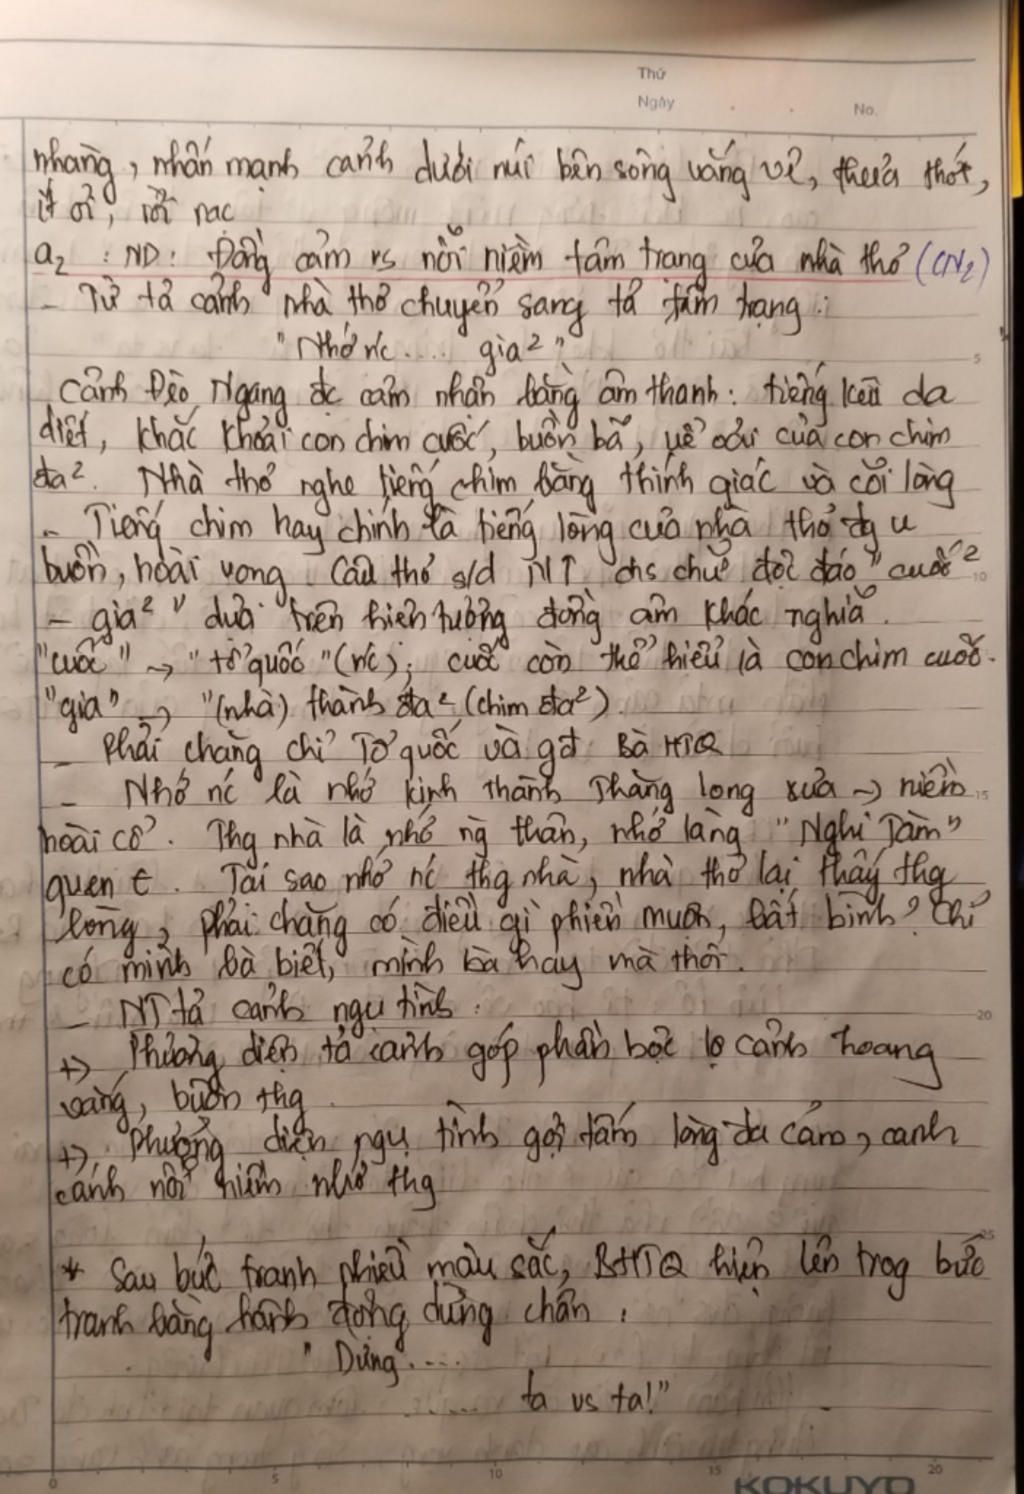 Thứ
Ngày
No.
nhàng, nhấn mạnh cảnh dưới núi bên sông vắng vẻ, thưa thớt,
ít ỏi, rời rạc
a2 : ND: Đồng cảm vs nỗi niềm tâm trạng của nhà thơ (CN2)
- Từ tả cảnh nhà thơ chuyển sang tả tâm trạng :
"Nhớ nc .... gia2"
5
Cảnh Đèo Ngang đc cảm nhận bằng âm thanh: tiếng kêu da
diết, khắc khoải con chim cuốc, buồn bã, của con chim
đa2. Nhà thơ nghe tiếng chim bằng thính giác và cõi lòng
- Tiếng chim hay chính là tiếng lòng của nhà thơ đg u
buồn, hoài vọng. Câu thơ s/d NT chs chữ độc đáo "cuốc2
10
- gia2" dựa trên hiện tượng đồng âm khác nghĩa.
"cuốc" → "tổ quốc" (nc); cuốc còn thể hiểu là con chim cuốc.
"gia" → "(nhà) thành đa2 (chim đa2).
- Phải chăng chỉ Tổ quốc và gđ Bà HTQ
- Nhớ nc là nhớ kinh thành Thăng Long xưa → niềm
15
hoài cổ. Thg nhà là nhớ ng thân, nhớ làng "Nghi Tàm"
quen t. Tại sao nhớ nc thg nhà, nhà thơ lại thấy thg
lòng, phải chăng có điều gì phiền muộn, bất bình? Chỉ
có mình bà biết, mình bà hay mà thôi.
- NT tả cảnh ngụ tình :
20
+> Phương diện tả cảnh góp phần bộc lộ cảnh hoang
vắng, buồn thg
+> Phương diện ngụ tình gợi tấm lòng đa cảm, canh
cánh nỗi niềm nhớ thg
25
* Sau bức tranh nhiều màu sắc, BHTQ hiện lên trog bức
tranh bằng hành động dừng chân :
"Dừng ....
...... ta vs ta!"
0 5 10 15 20
KOKUYO